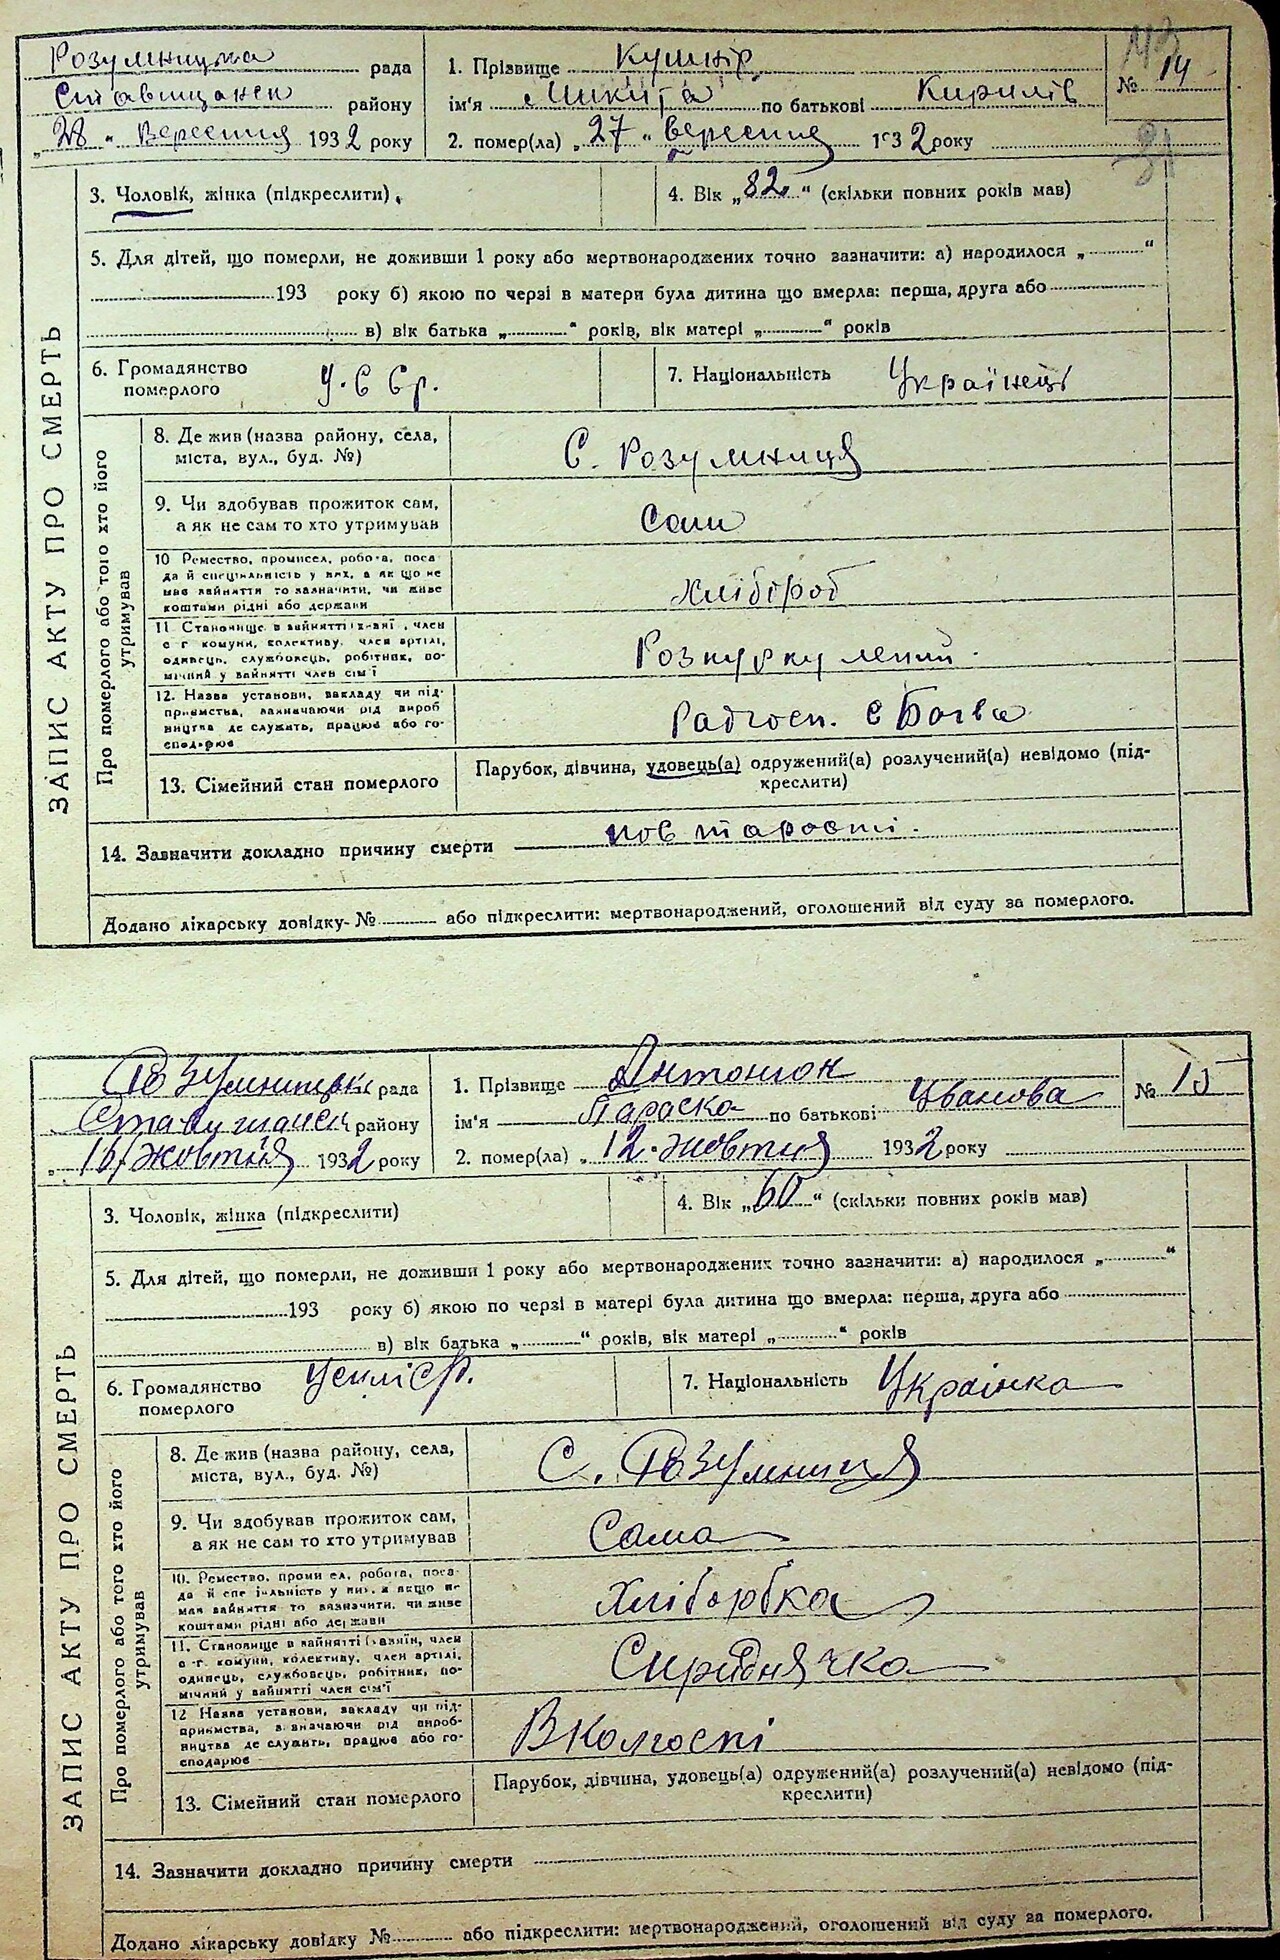 Розумницка рада
Ставищанск району
„28" Вересня 1932 року
1. Прізвище Кушнір
ім'я Микита по батькові Кирилів
2. помер(ла) „27" вересня 1932 року
№ 14
31
3. Чоловік, жінка (підкреслити).
4. Вік „82" (скільки повних років мав)
5. Для дітей, що померли, не доживши 1 року або мертвонароджених точно зазначити: а) народилося „ "
193 року б) якою по черзі в матери була дитина що вмерла: перша, друга або
в) вік батька „ " років, вік матері „ " років
6. Громадянство
померлого
У.ССр.
7. Національність Українець
ЗАПИС АКТУ ПРО СМЕРТЬ
Про померлого або того хто його
утримував
8. Де жив (назва району, села,
міста, вул., буд. №)
С. Розумниця
9. Чи здобував прожиток сам,
а як не сам то хто утримував
Сам
10 Ремество, промисел, робота, поса
да й спеціальність у них, а як що не
мав зайняття то зазначити, чи живе
коштами рідні або держави
Хлібороб
11 Становище в зайнятті (х-вяї, член
с г комуни, колективу, член артілі,
одинець, службовець, робітник, по-
мічний у зайнятті член сім'ї
Розкуркулений.
12. Назва установи, закладу чи під-
приємства, зазначаючи рід вироб
ництва де служить, працює або го-
сподарює
Радгосп. с
13. Сімейний стан померлого
Парубок, дівчина, удовець(а) одружений(а) розлучений(а) невідомо (під-
креслити)
14. Зазначити докладно причину смерти по старості.
Додано лікарську довідку- № або підкреслити: мертвонароджений, оголошений від суду за померлого.
Розумницька рада
Ставищанськ району
„16" жовтня 1932 року
1. Прізвище Антонюк
ім'я Параска по батькові Іванова
2. помер(ла) „12" жовтня 1932 року
№ 15
3. Чоловік, жінка (підкреслити)
4. Вік „60" (скільки повних років мав)
5. Для дітей, що померли, не доживши 1 року або мертвонароджених точно зазначити: а) народилося „ "
193 року б) якою по черзі в матері була дитина що вмерла: перша, друга або
в) вік батька „ " років, вік матері „ " років
6. Громадянство
померлого
7. Національність Українка
ЗАПИС АКТУ ПРО СМЕРТЬ
Про померлого або того хто його
утримував
8. Де жив (назва району, села,
міста, вул., буд. №)
С. Розумниця
9. Чи здобував прожиток сам,
а як не сам то хто утримував
Сама
10. Ремество, проми ел, робота, поса-
да й спе іальність у них, а якщо не
мав зайняття то зазначити, чи живе
коштами рідні або держави
Хліборобка
11. Становище в зайнятті (хазяїн, член
с -г. комуни, колективу, член артілі,
одинець, службовець, робітник, по-
мічний у зайнятті член сім'ї
Сириднячка
12 Назва установи, закладу чи під-
приємства, зазначаючи рід вироб-
ництва де служить, працює або го-
сподарює
В Колгоспі
13. Сімейний стан померлого
Парубок, дівчина, удовець(а) одружений(а) розлучений(а) невідомо (під-
креслити)
14. Зазначити докладно причину смерти
Додано лікарську довідку № або підкреслити: мертвонароджений, оголошений від суду за померлого.